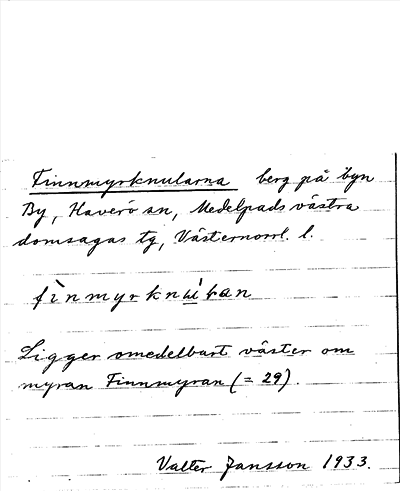 Finnmyrknularna berg på byn
By, Haverö sn, Medelpads västra
domsagas tg, Västernorrl. l.
fìnmyrknúɫan
Ligger omedelbart väster om
myran Finnmyran (= 29).
Valter Jansson 1933.